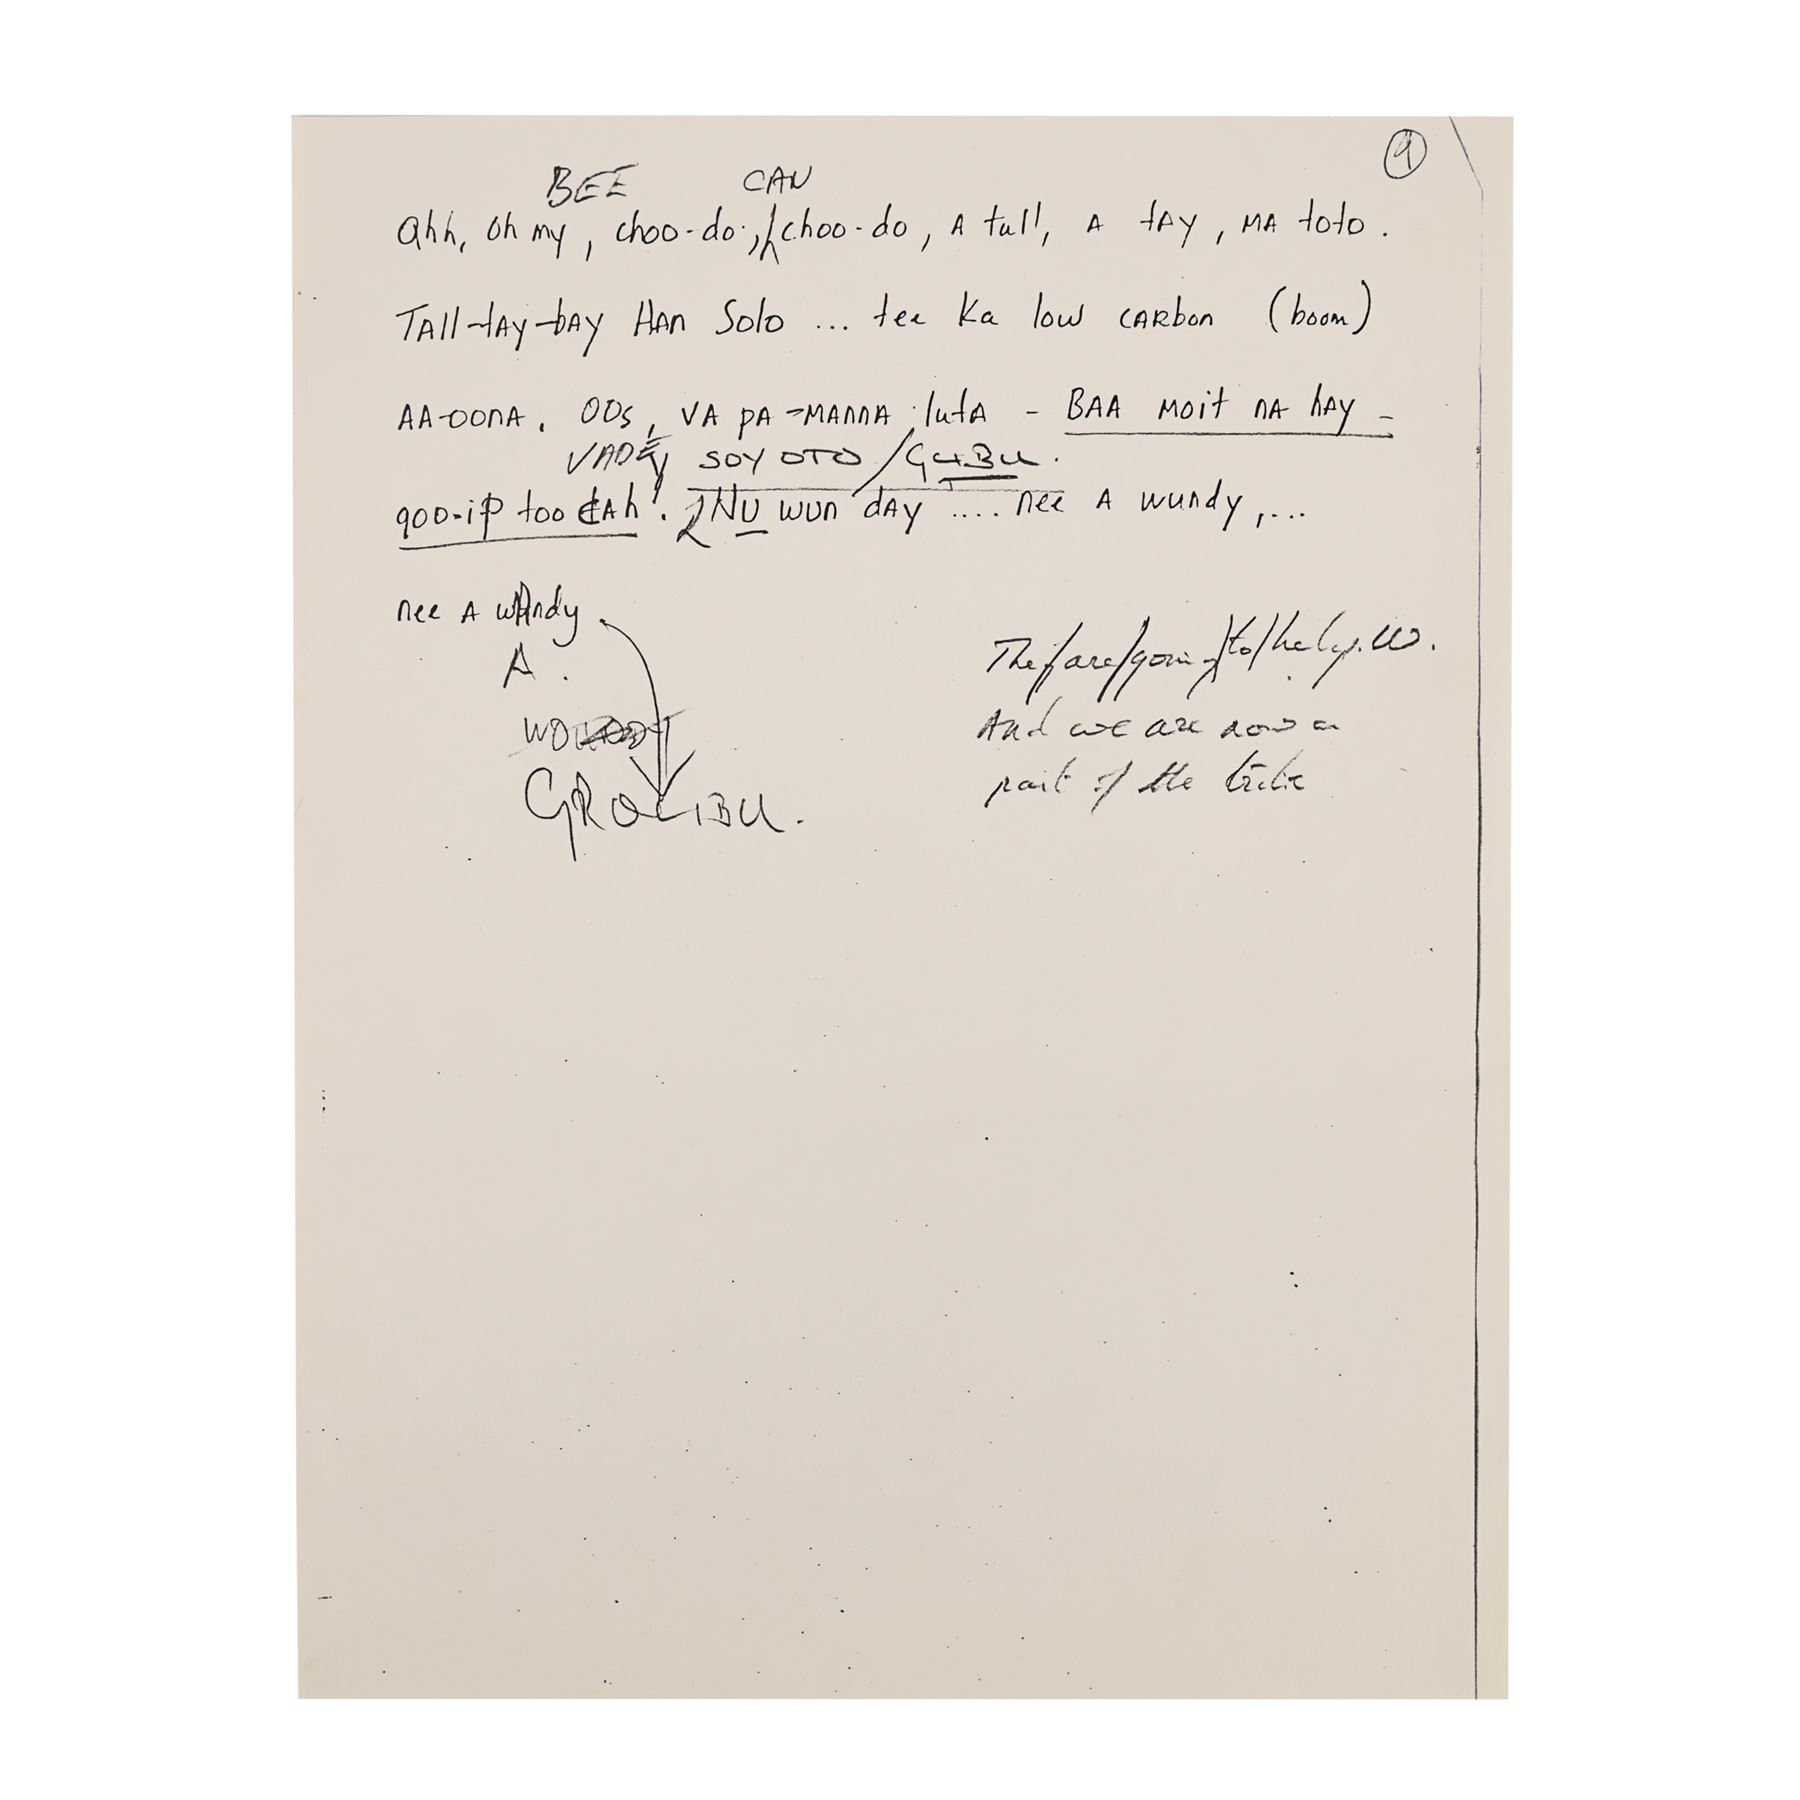 9
BEE CAN
ahh, oh my, choo-do, choo-do, A tull, A tAy, MA toto.
TAll-tAy-bAy HAn Solo ... tee Ka low CARbon (boom)
AA-oonA. OOs, VA pA-MAnnA lutA - BAA Moit nA hAy -
VADEY SOY OTO / GUBU.
goo-ip too cAh! NU wun dAy .... nee A wundy, ...
nee A wAndy
A.
GROLIBU.
They/are/going/to/help. us.
And we are now a
part of the tribe